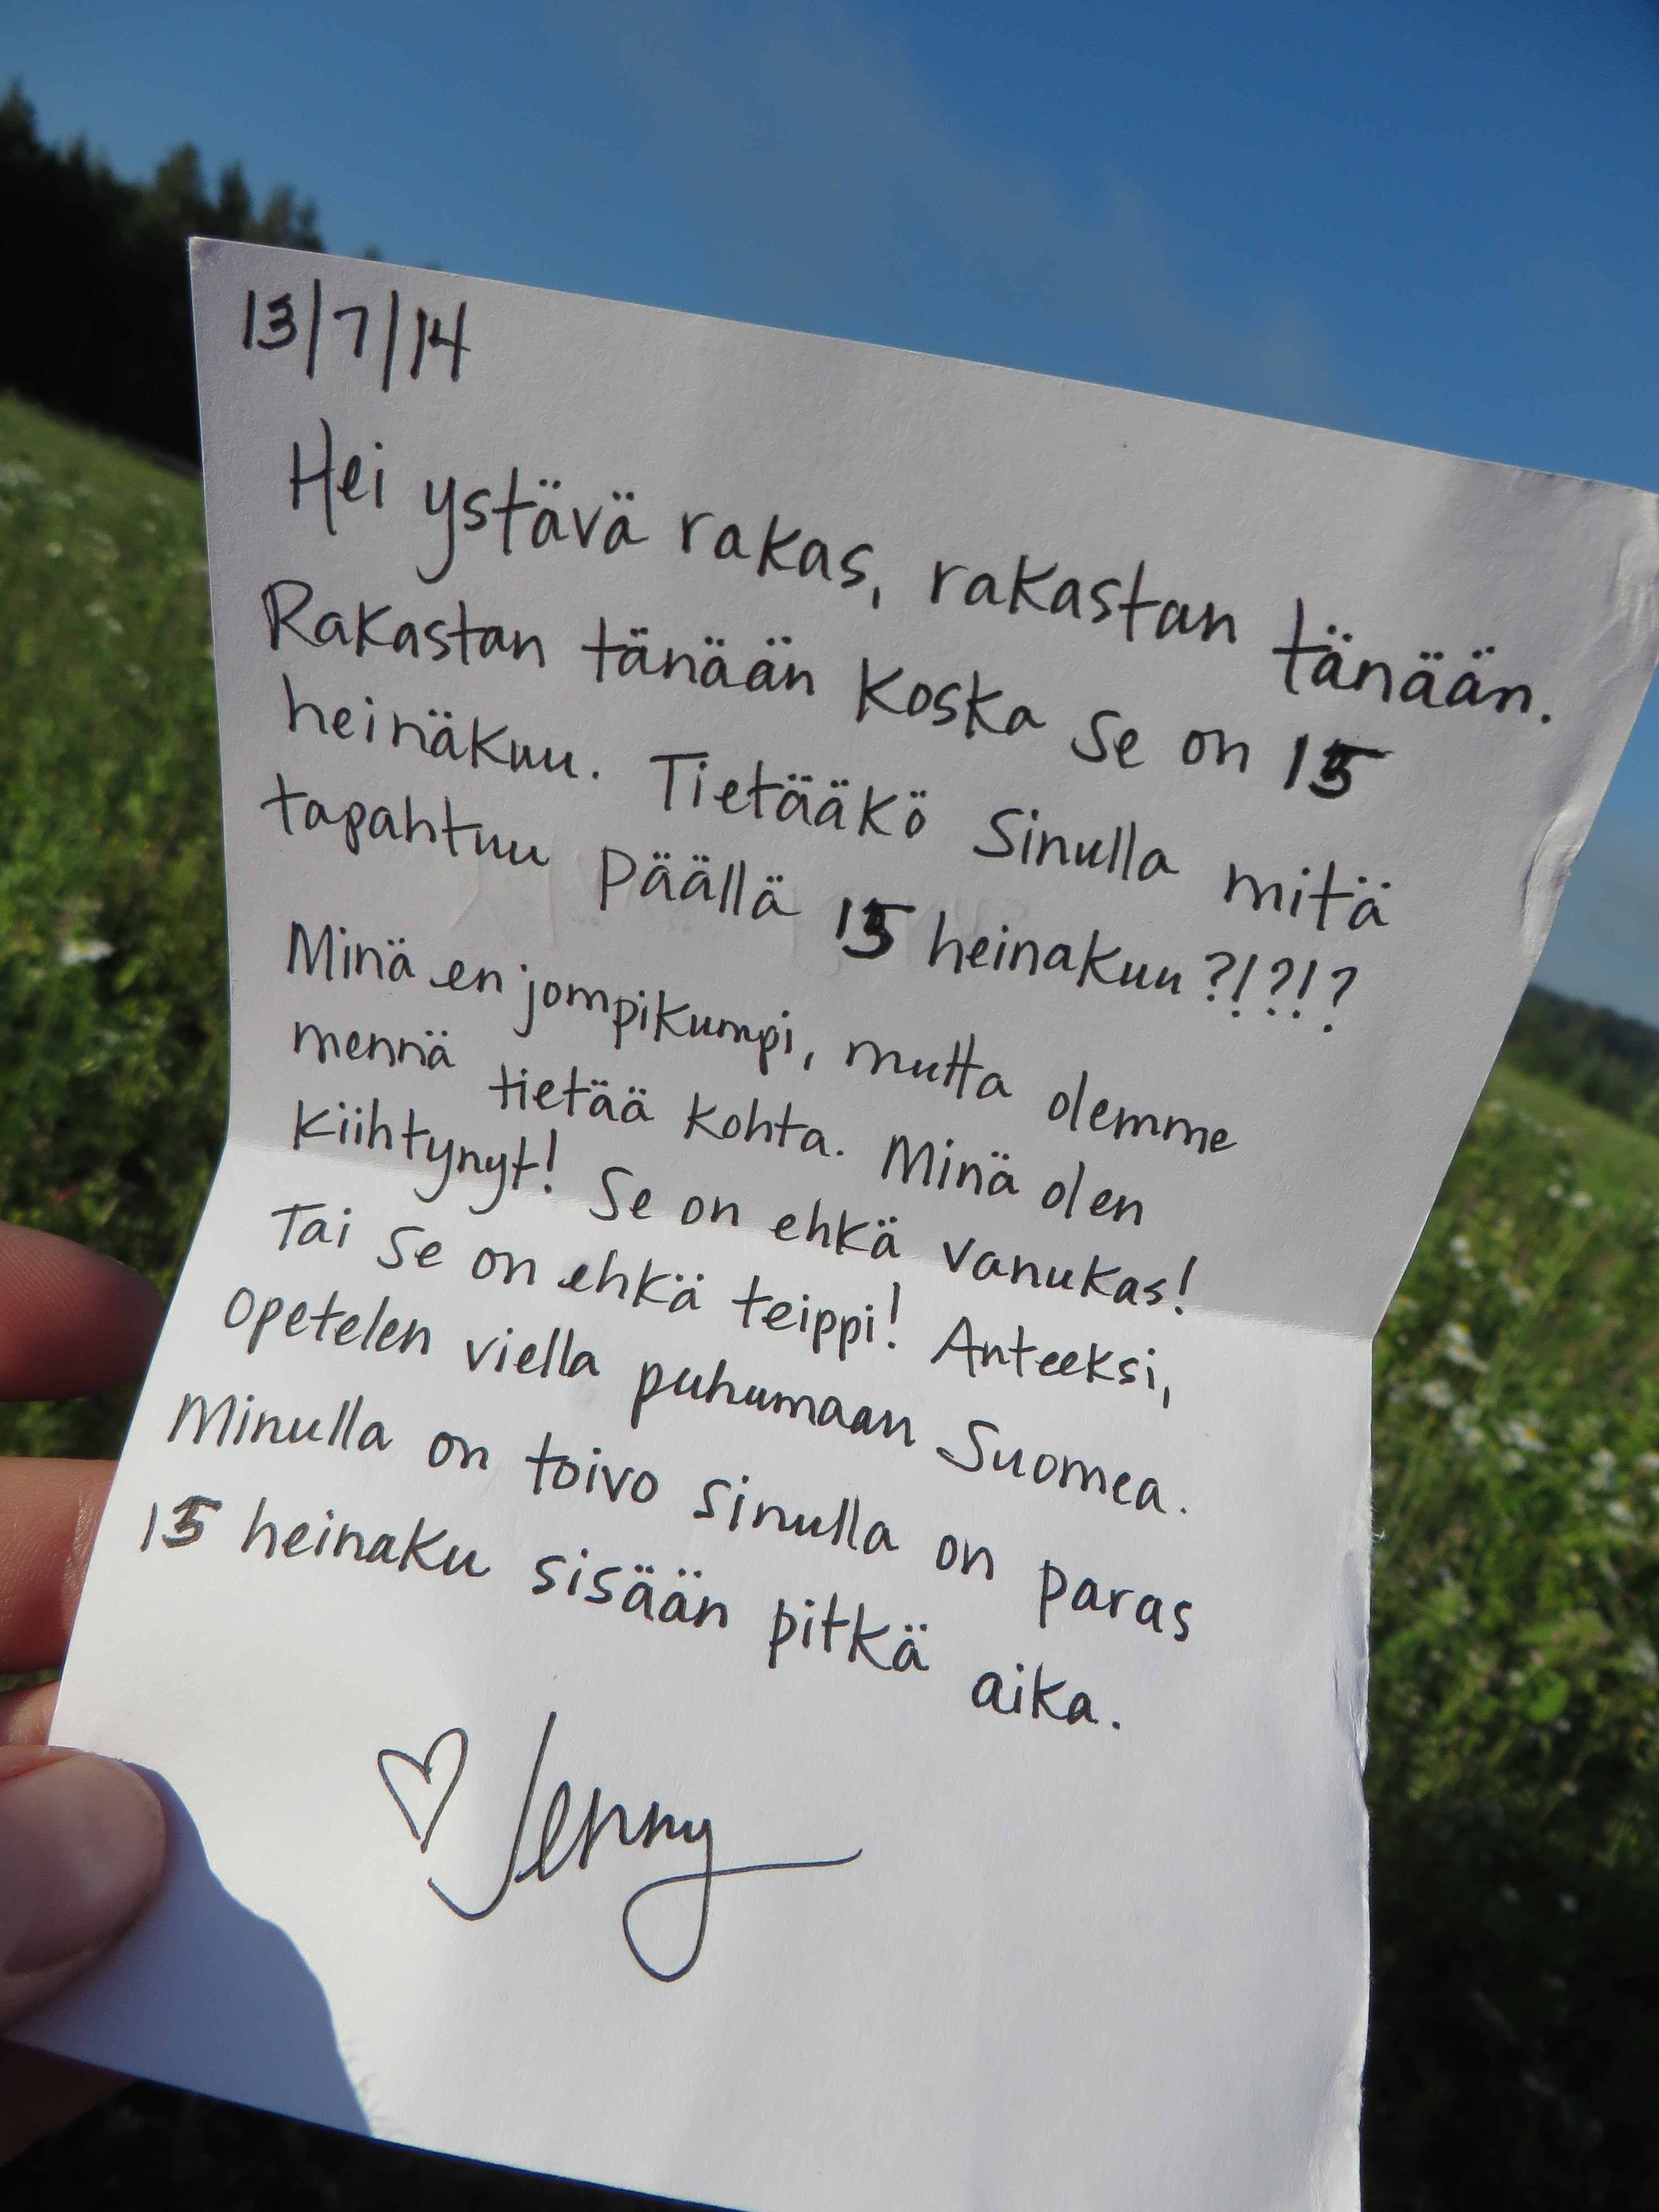 13/7/14
Hei ystävä rakas, rakastan tänään.
Rakastan tänään koska se on 15
heinäkuu. Tietääkö sinulla mitä
tapahtuu päällä 15 heinakuu?!?!?
Minä en jompikumpi, mutta olemme
mennä tietää kohta. Minä olen
kiihtynyt! Se on ehkä vanukas!
Tai se on ehkä teippi! Anteeksi,
opetelen viella puhumaan Suomea.
Minulla on toivo sinulla on paras
15 heinaku sisään pitkä aika.
♡ Jenny